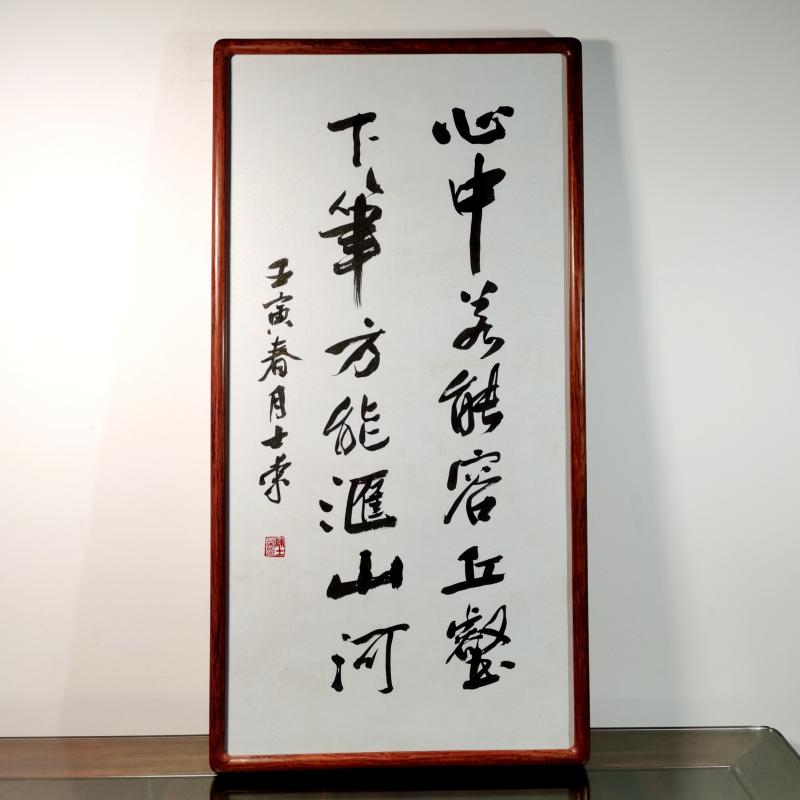 心中若能容丘壑
下筆方能滙山河
壬寅春月士索